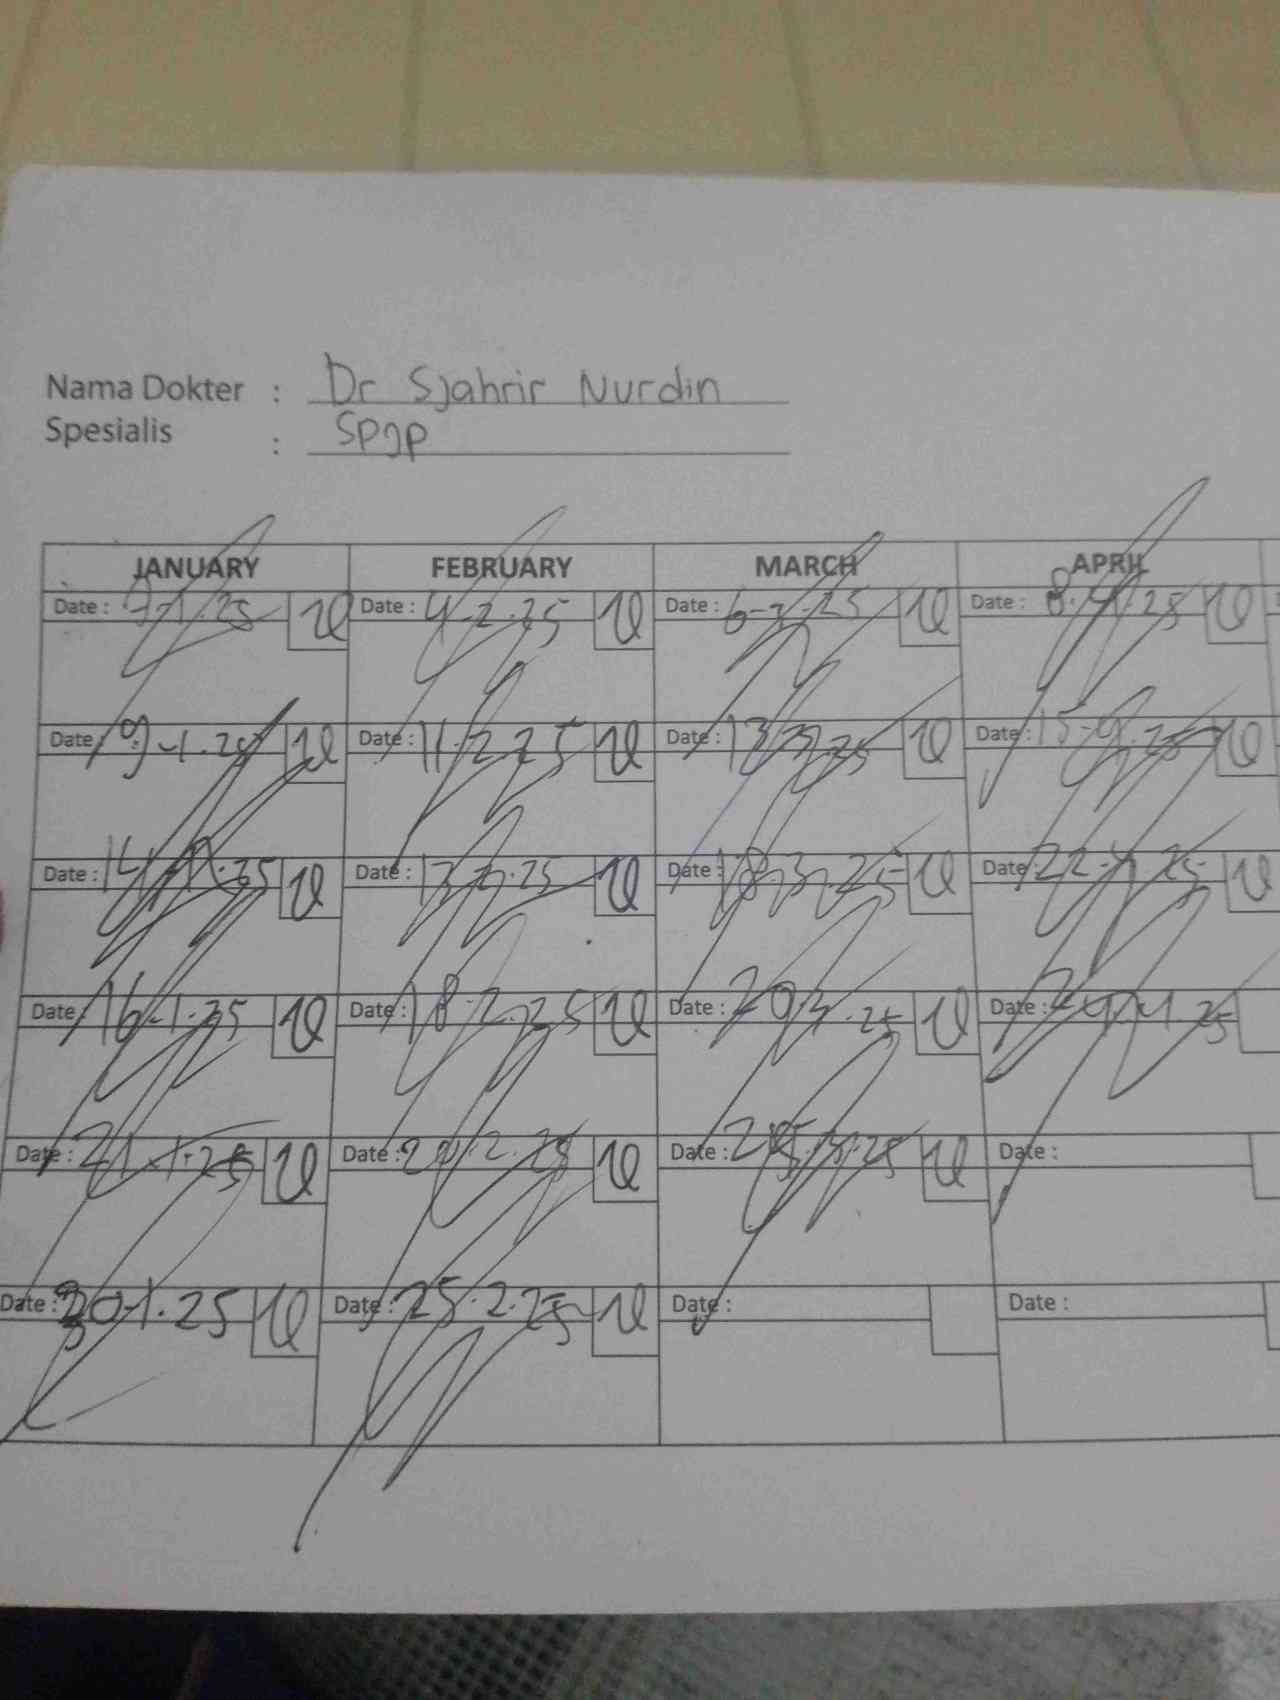 Nama Dokter : Dr Sjahrir Nurdin
Spesialis : SPJP
JANUARY FEBRUARY MARCH APRIL
Date : 7-1.25 Date : 4-2.25 Date : 6-3.25 Date : 8.4.25
Date : 9-1.25 Date : 11.2.25 Date : 13.3.25 Date : 15-4.25
Date : 14.1.25 Date : 13.2.25 Date : 18.3.25 Date : 22.4.25
Date : 16-1.25 Date : 18-2.25 Date : 20.3.25 Date : 24.4.25
Date : 21.1.25 Date : 20.2.25 Date : 25.3.25 Date :
Date : 30-1.25 Date : 25.2.25 Date : Date :